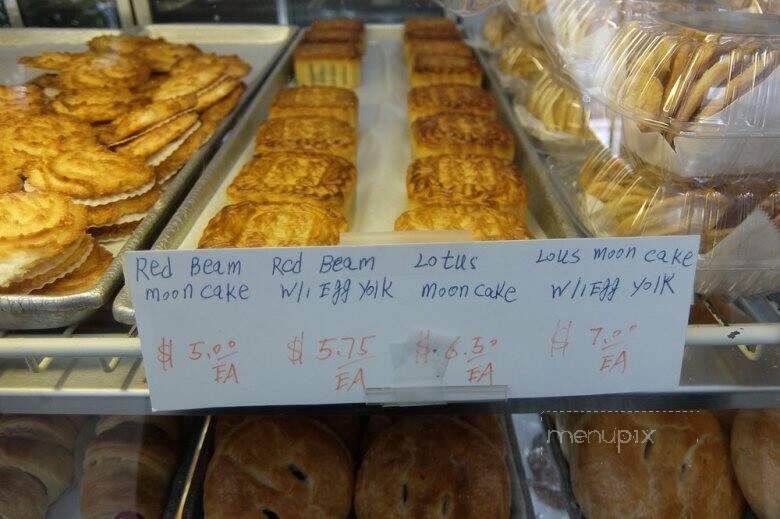 Red Beam
moon cake
$ 5.00
EA
Red Beam
w/1 Egg Yolk
$ 5.75
EA
Lotus
moon cake
$ 6.50
EA
Lous moon cake
w/1 Egg Yolk
$ 7.00
EA
menupix